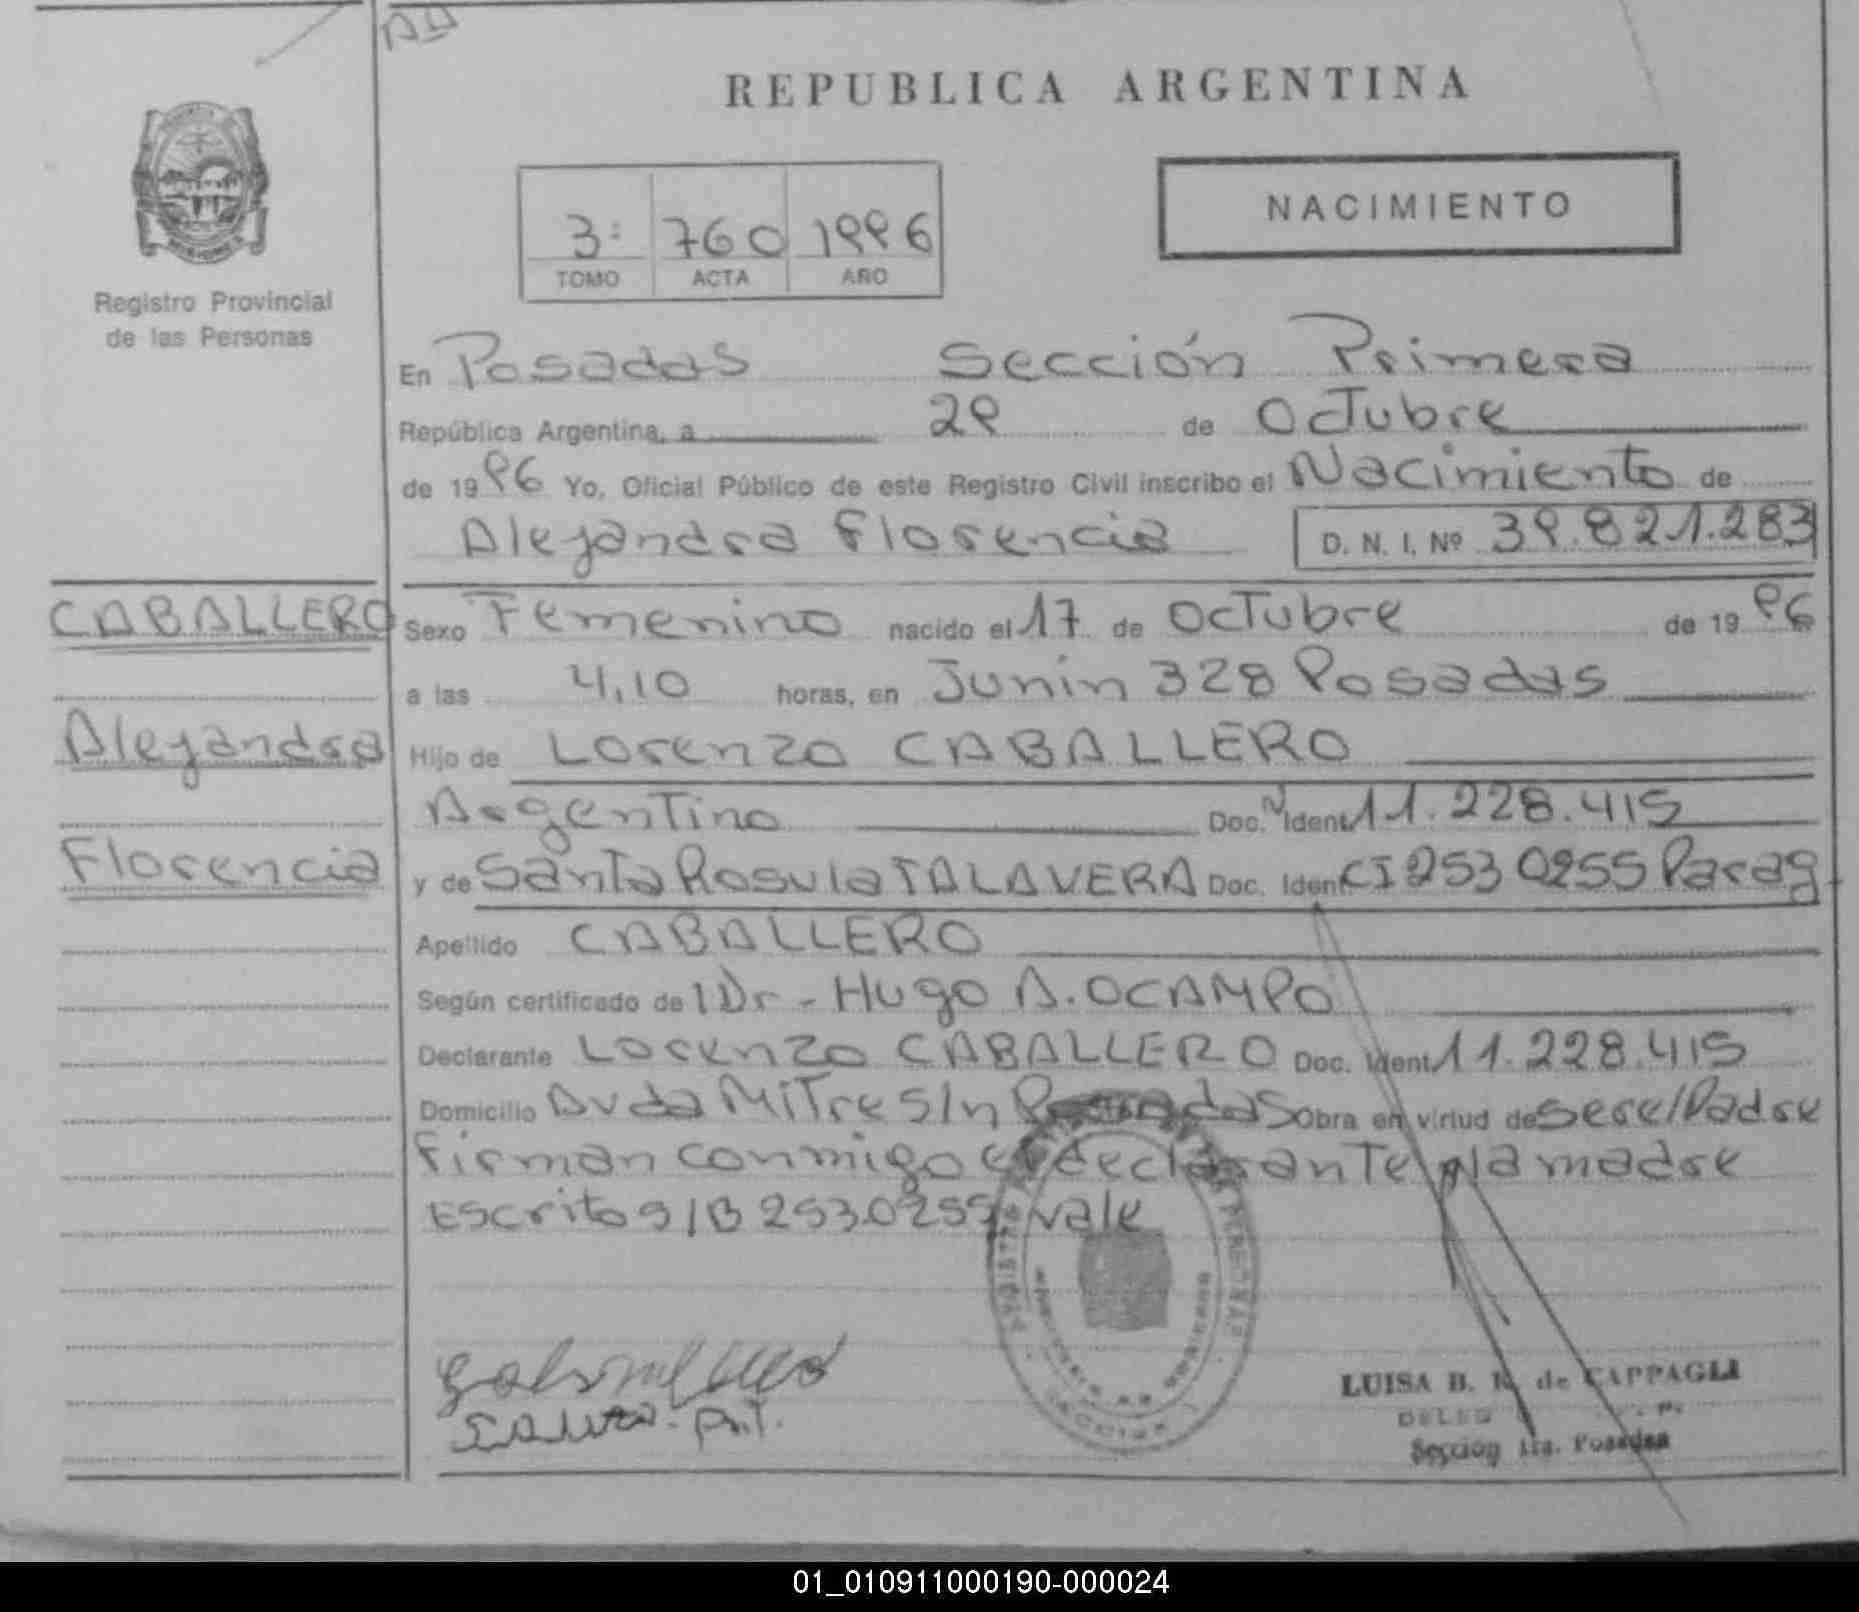 REPUBLICA ARGENTINA
NACIMIENTO
3: 760 1996
TOMO ACTA AÑO
Registro Provincial
de las Personas
En Posadas Sección Primera
República Argentina, a 29 de Octubre
de 1996 Yo, Oficial Público de este Registro Civil inscribo el Nacimiento de
Alejandra Florencia D. N. I. Nº 39.821.283
CABALLERO
Alejandra
Florencia
Sexo Femenino nacido el 17 de Octubre de 1996
a las 4,10 horas, en Junín 328 Posadas
Hijo de Lorenzo CABALLERO
Argentino Doc. Ident 11.228.415
y de Santa Rosula TALAVERA Doc. Ident CI 2530255 Parag
Apellido CABALLERO
Según certificado de l Dr - Hugo A. OCAMPO
Declarante Lorenzo CABALLERO Doc. Ident 11.228.415
Domicilio Avda Mitre S/n Posadas Obra en virtud de ser el Padre
Firman conmigo el declarante y la madre
Escrito s/B 2530255 vale
LUISA B. de CAPPAGLI
Sección 1ra. Posadas
01_010911000190-000024